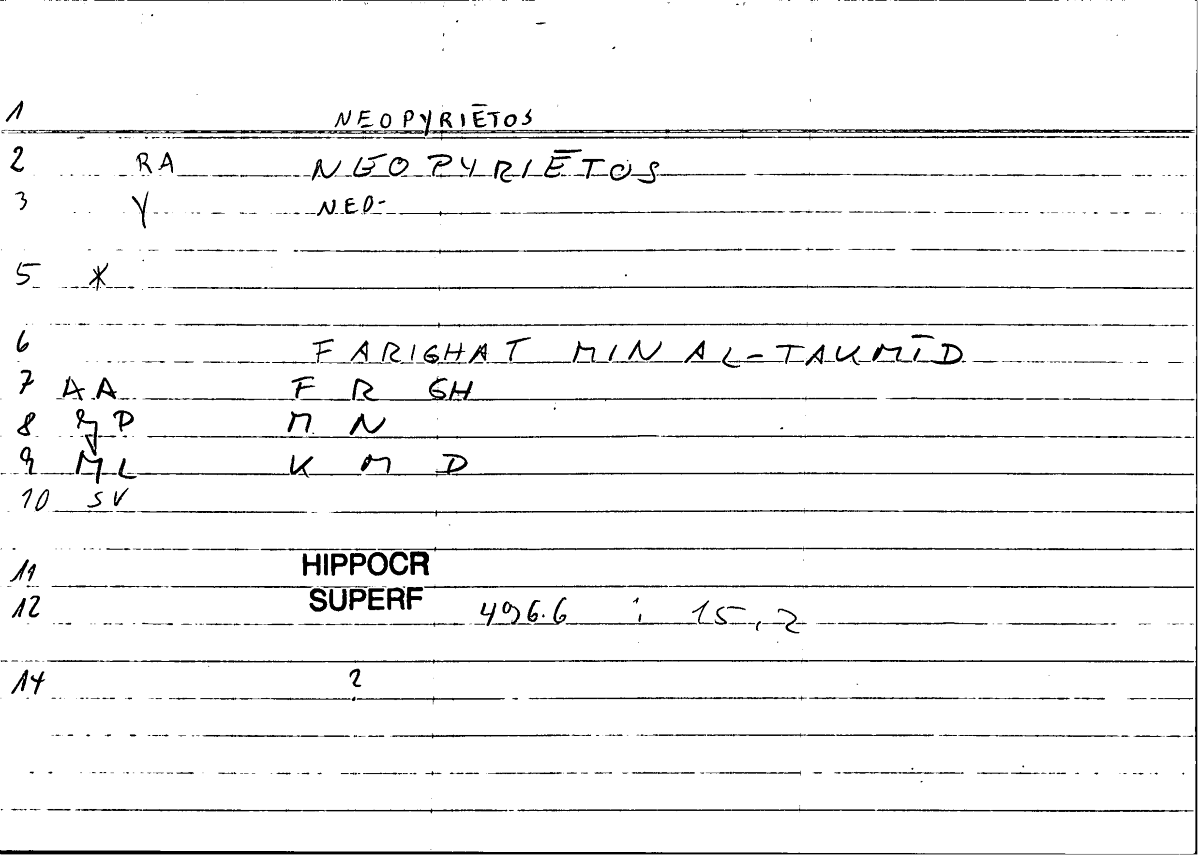 1 NEOPYRIĒTOS
2 RA NEOPYRIĒTOS
3 Y NEO-
5 *
6 FARIGHAT MIN AL-TAKMĪD
7 AA F R GH
8 P M N
9 ML K M D
10 SV
11 HIPPOCR
12 SUPERF 496.6 ; 15,2
14 ?